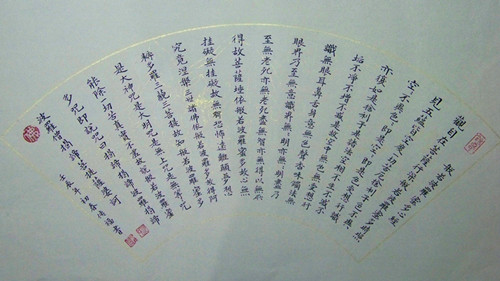 般若波羅蜜多心經
觀自在菩薩行深般若波羅蜜多時照
見五蘊皆空度一切苦厄舍利子色不異
空空不異色色即是空空即是色受想行識
亦復如是舍利子是諸法空相不生不滅不
垢不淨不增不減是故空中無色無受想行
識無眼耳鼻舌身意無色聲香味觸法無
眼界乃至無意識界無無明亦無無明盡乃
至無老死亦無老死盡無智亦無得以無所
得故菩提薩埵依般若波羅蜜多故心無
挂礙無挂礙故無有恐怖遠離顛倒夢想
究竟涅槃三世諸佛依般若波羅蜜多故得阿
耨多羅三藐三菩提故知般若波羅蜜多
是大神咒是大明咒是無上咒是無等等咒
能除一切苦真實不虛故說般若波羅蜜
多咒即說咒曰揭諦揭諦波羅揭諦
波羅僧揭諦菩提薩婆訶
壬辰年初春 書